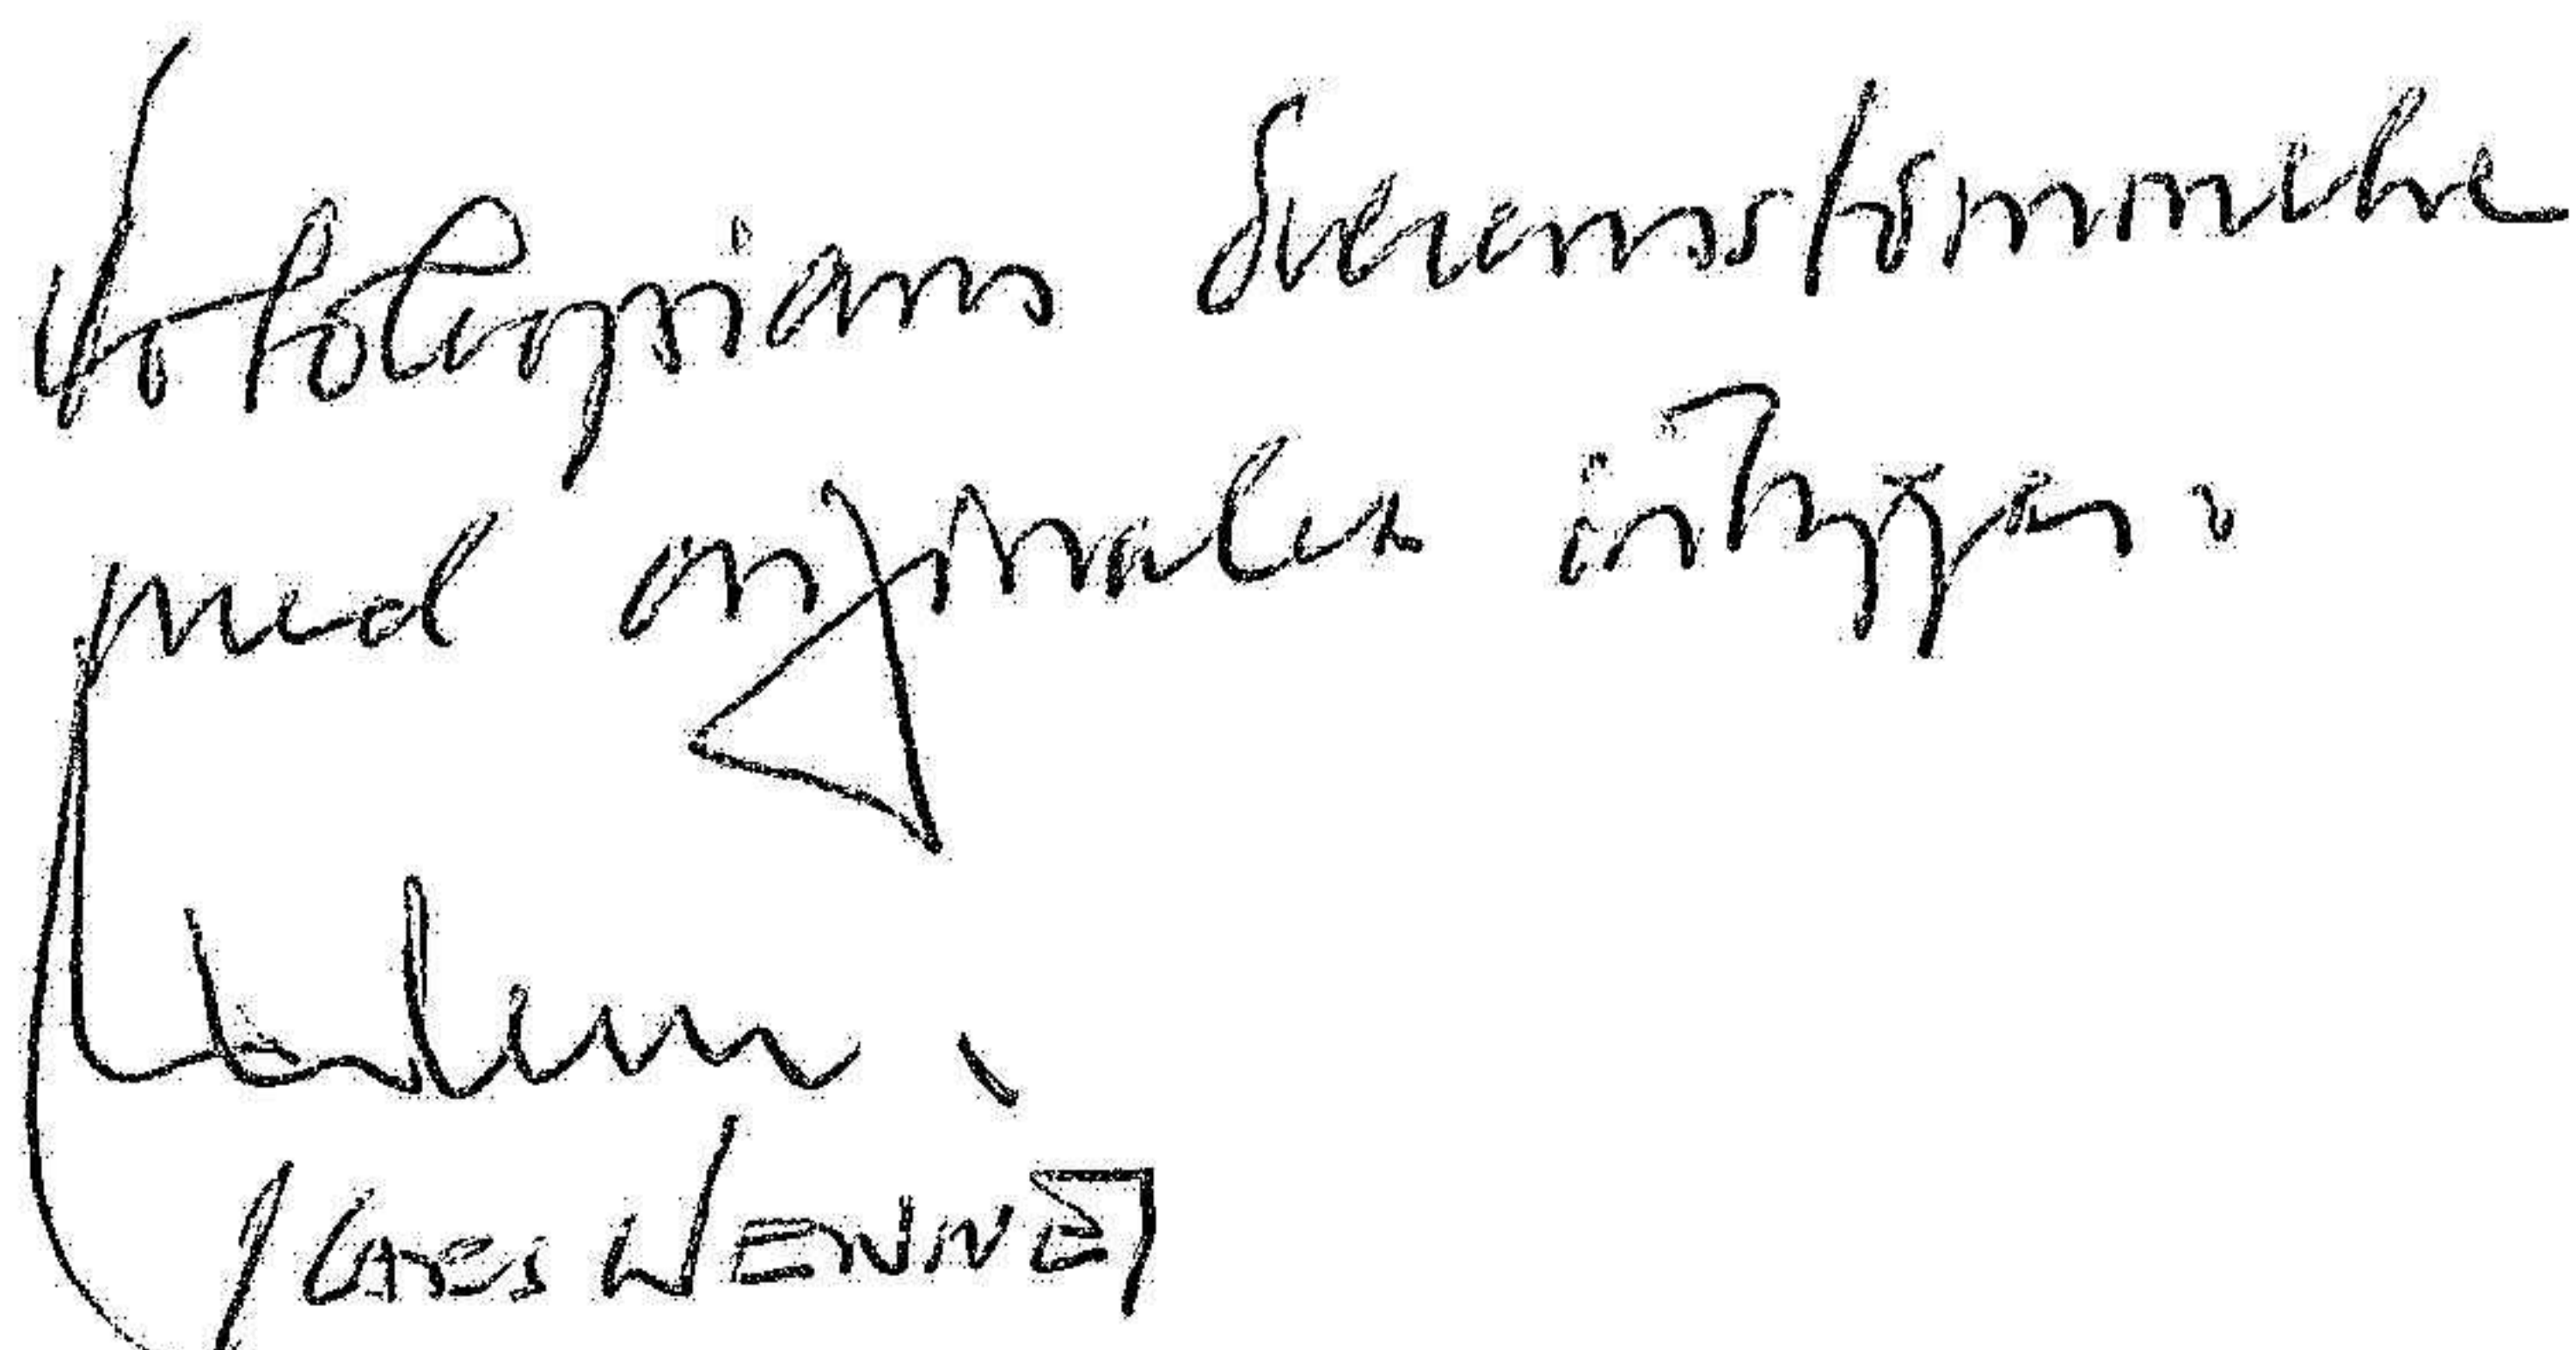 Fotokopians överensstämmelse
med originalet intygas:
/ LARS WENNET